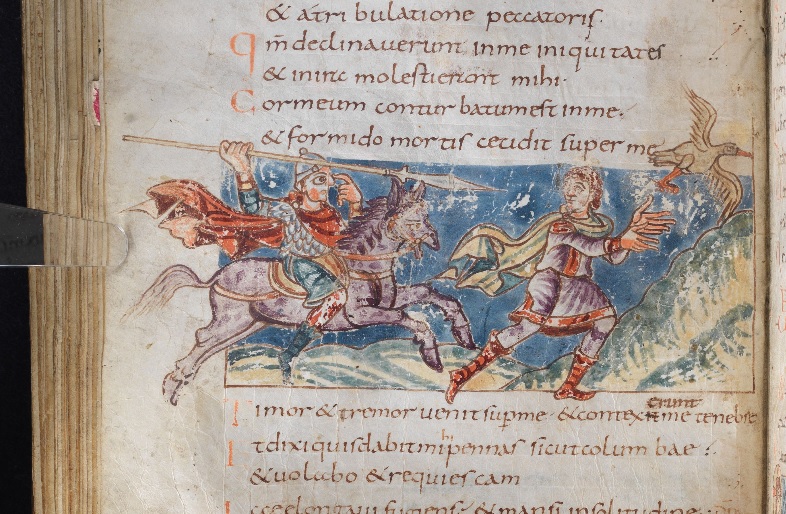 & atribulatione peccatoris·
Qm̄ declinauerunt inme iniquitates
& inira molestierant mihi·
Cormeum conturbatumest inme·
& formido mortis cecidit super me
Timor & tremor uenit sup me· & contexerunt me tenebre
Et dixi quisdabit mihi pennas sicut columbae·
& uolabo & requiescam
Ecce elongaui fugiens· & mansi insolitudine·